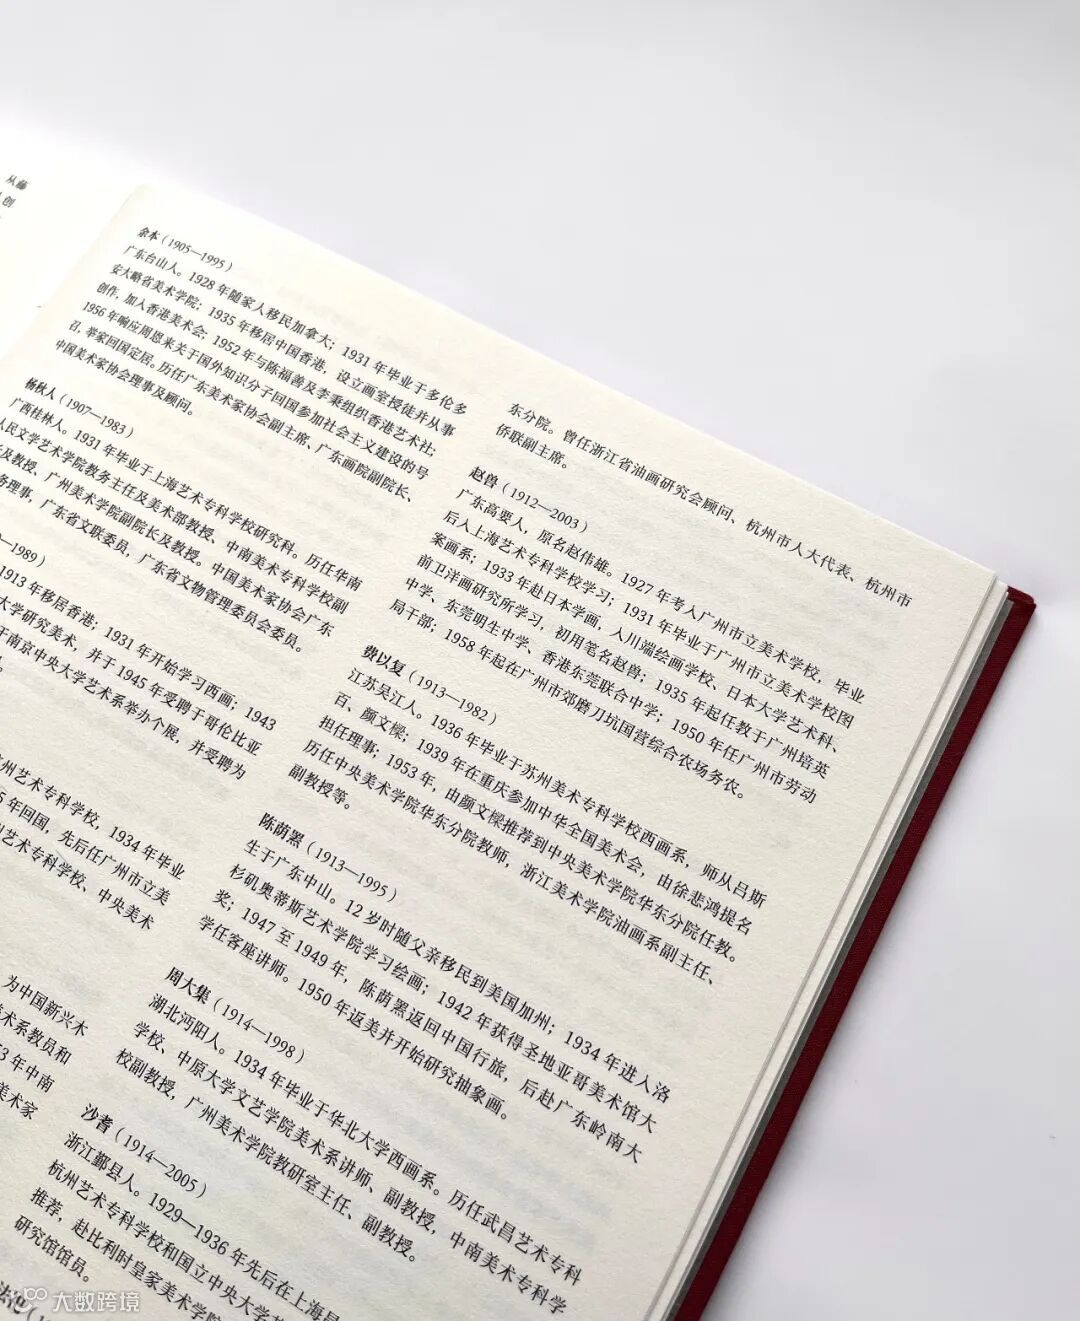 从藤
创
余本（1905—1995）
广东台山人。1928年随家人移民加拿大；1931年毕业于多伦多
安大略省美术学院；1935年移居中国香港，设立画室授徒并从事
创作，加入香港美术会；1952年与陈福善及李秉组织香港艺术社；
1956年响应周恩来关于国外知识分子回国参加社会主义建设的号
召，举家回国定居。历任广东美术家协会副主席、广东画院副院长、
中国美术家协会理事及顾问。
杨秋人（1907—1983）
广西桂林人。1931年毕业于上海艺术专科学校研究科。历任华南
人民文学艺术学院教务主任及美术部教授、中南美术专科学校副
及教授、广州美术学院副院长及教授。中国美术家协会广东
务理事，广东省文联委员，广东省文物管理委员会委员。
—1989）
1913年移居香港；1931年开始学习西画；1943
大学研究美术，并于1945年受聘于哥伦比亚
于南京中央大学艺术系举办个展，并受聘为
州艺术专科学校，1934年毕业
5年回国，先后任广州市立美
州艺术专科学校、中央美术
为中国新兴木
美术系教员和
53年中南
美术家
东分院。曾任浙江省油画研究会顾问、杭州市人大代表、杭州市
侨联副主席。
赵兽（1912—2003）
广东高要人，原名赵伟雄。1927年考入广州市立美术学校，毕业
后入上海艺术专科学校学习；1931年毕业于广州市立美术学校图
案画系；1933年赴日本学画，入川端绘画学校、日本大学艺术科、
前卫洋画研究所学习，初用笔名赵兽；1935年起任教于广州培英
中学、东莞明生中学、香港东莞联合中学；1950年任广州市劳动
局干部；1958年起在广州市郊磨刀坑国营综合农场务农。
费以复（1913—1982）
江苏吴江人。1936年毕业于苏州美术专科学校西画系，师从吕斯
百、颜文樑；1939年在重庆参加中华全国美术会，由徐悲鸿提名
担任理事；1953年，由颜文樑推荐到中央美术学院华东分院任教。
历任中央美术学院华东分院教师，浙江美术学院油画系副主任、
副教授等。
陈荫罴（1913—1995）
生于广东中山。12岁时随父亲移民到美国加州；1934年进入洛
杉矶奥蒂斯艺术学院学习绘画；1942年获得圣地亚哥美术馆大
奖；1947至1949年，陈荫罴返回中国行旅，后赴广东岭南大
学任客座讲师。1950年返美并开始研究抽象画。
周大集（1914—1998）
湖北沔阳人。1934年毕业于华北大学西画系。历任武昌艺术专科
学校、中原大学文艺学院美术系讲师、副教授，中南美术专科学
校副教授，广州美术学院教研室主任、副教授。
沙耆（1914—2005）
浙江鄞县人。1929—1936年先后在上海昌
杭州艺术专科学校和国立中央大学艺
推荐，赴比利时皇家美术学院
研究馆馆员。
大数跨境